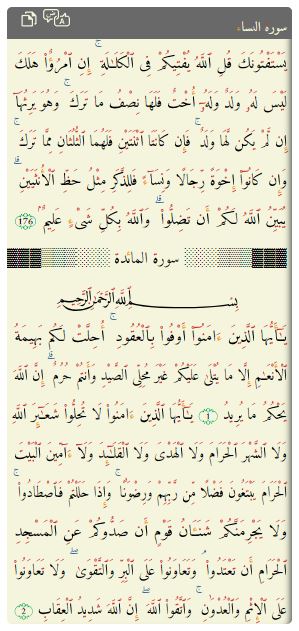 سوره النساء
يَسْتَفْتُونَكَ قُلِ ٱللَّهُ يُفْتِيكُمْ فِى ٱلْكَلَـٰلَةِ ۚ إِنِ ٱمْرُؤٌا۟ هَلَكَ
لَيْسَ لَهُۥ وَلَدٌ وَلَهُۥٓ أُخْتٌ فَلَهَا نِصْفُ مَا تَرَكَ ۚ وَهُوَ يَرِثُهَآ
إِن لَّمْ يَكُن لَّهَا وَلَدٌ ۚ فَإِن كَانَتَا ٱثْنَتَيْنِ فَلَهُمَا ٱلثُّلُثَانِ مِمَّا تَرَكَ ۚ
وَإِن كَانُوٓا۟ إِخْوَةً رِّجَالًا وَنِسَآءً فَلِلذَّكَرِ مِثْلُ حَظِّ ٱلْأُنثَيَيْنِ ۗ
يُبَيِّنُ ٱللَّهُ لَكُمْ أَن تَضِلُّوا۟ ۗ وَٱللَّهُ بِكُلِّ شَىْءٍ عَلِيمٌۢ 176
سورة المائدة
بِسْمِ ٱللَّهِ ٱلرَّحْمَـٰنِ ٱلرَّحِيمِ
يَـٰٓأَيُّهَا ٱلَّذِينَ ءَامَنُوٓا۟ أَوْفُوا۟ بِٱلْعُقُودِ ۚ أُحِلَّتْ لَكُم بَهِيمَةُ
ٱلْأَنْعَـٰمِ إِلَّا مَا يُتْلَىٰ عَلَيْكُمْ غَيْرَ مُحِلِّى ٱلصَّيْدِ وَأَنتُمْ حُرُمٌ ۗ إِنَّ ٱللَّهَ
يَحْكُمُ مَا يُرِيدُ 1 يَـٰٓأَيُّهَا ٱلَّذِينَ ءَامَنُوا۟ لَا تُحِلُّوا۟ شَعَـٰٓئِرَ ٱللَّهِ
وَلَا ٱلشَّهْرَ ٱلْحَرَامَ وَلَا ٱلْهَدْىَ وَلَا ٱلْقَلَـٰٓئِدَ وَلَآ ءَآمِّينَ ٱلْبَيْتَ
ٱلْحَرَامَ يَبْتَغُونَ فَضْلًا مِّن رَّبِّهِمْ وَرِضْوَٰنًا ۚ وَإِذَا حَلَلْتُمْ فَٱصْطَادُوا۟ ۚ
وَلَا يَجْرِمَنَّكُمْ شَنَـَٔانُ قَوْمٍ أَن صَدُّوكُمْ عَنِ ٱلْمَسْجِدِ
ٱلْحَرَامِ أَن تَعْتَدُوا۟ ۘ وَتَعَاوَنُوا۟ عَلَى ٱلْبِرِّ وَٱلتَّقْوَىٰ ۖ وَلَا تَعَاوَنُوا۟
عَلَى ٱلْإِثْمِ وَٱلْعُدْوَٰنِ ۚ وَٱتَّقُوا۟ ٱللَّهَ ۖ إِنَّ ٱللَّهَ شَدِيدُ ٱلْعِقَابِ 2